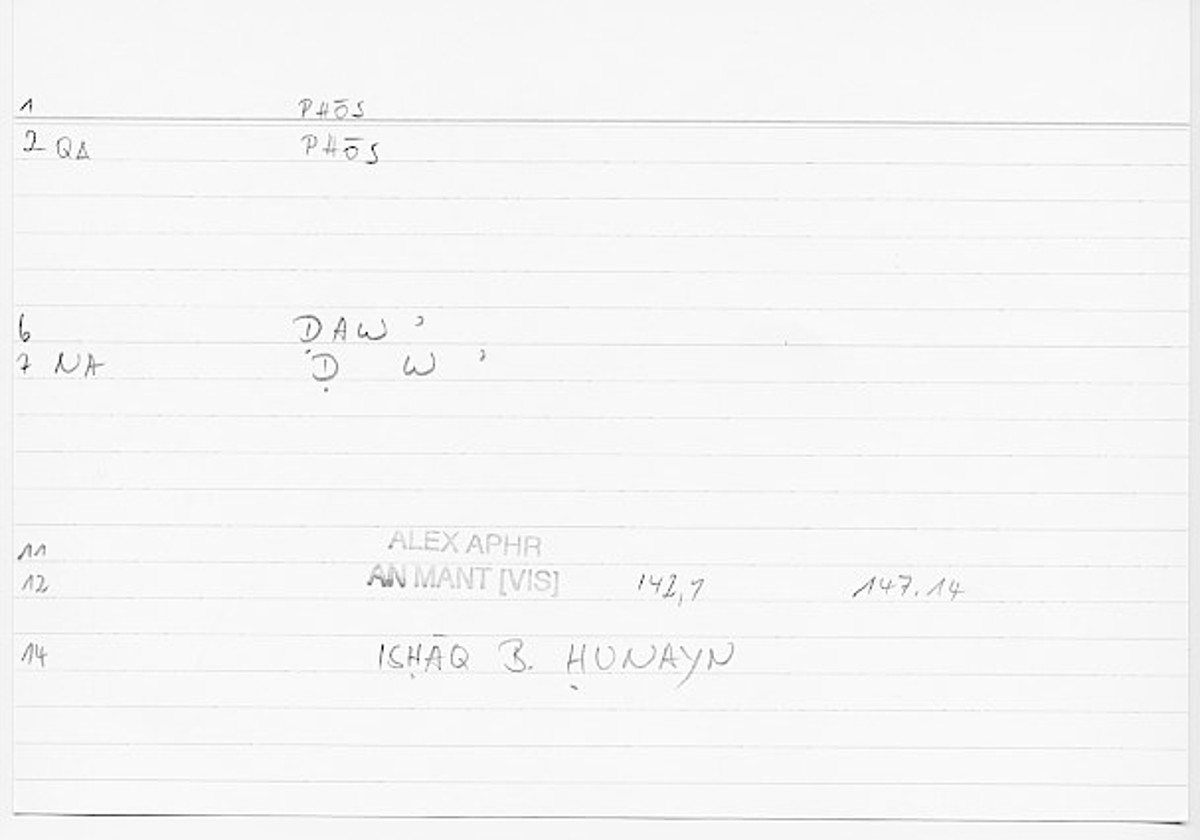 1 PHŌS
2 QA PHŌS
6 ḌAW ʾ
7 NA Ḍ W ʾ
11 ALEX APHR
12 AN MANT [VIS] 142,1 147.14
14 ISḤĀQ B. ḤUNAYN